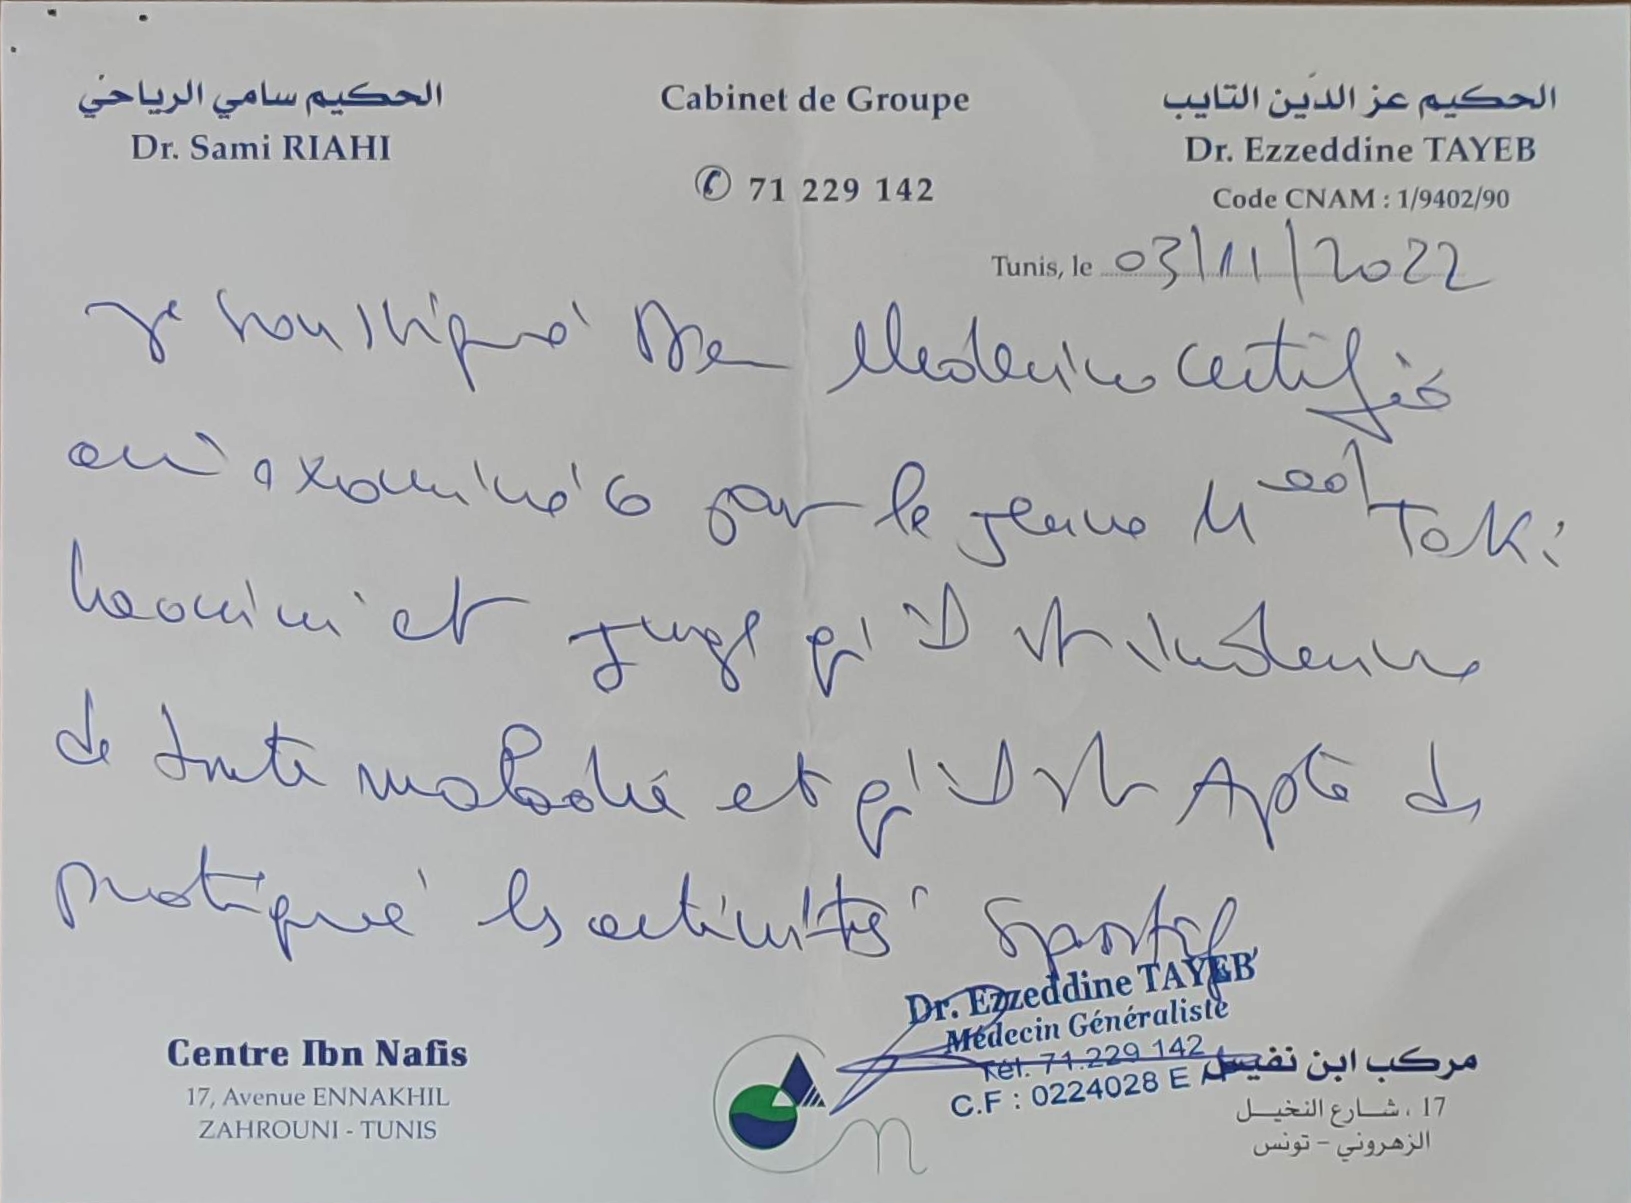 الحكيم سامي الرياحي
Dr. Sami RIAHI
Cabinet de Groupe
✆ 71 229 142
الحكيم عز الدين التايب
Dr. Ezzeddine TAYEB
Code CNAM : 1/9402/90
Tunis, le 03/11/2022
Je soussigné Médecin certifie
examiné le jeune Taki
et jugé qu'il est indemne
de toute maladie et qu'il est Apte de
pratiqué les activités sportif
Dr. Ezzeddine TAYEB
Médecin Généraliste
Tél. 71.229 142
C.F : 0224028 E
Centre Ibn Nafis
17, Avenue ENNAKHIL
ZAHROUNI - TUNIS
مركب ابن نفيس
17 ، شارع النخيل
الزهروني - تونس